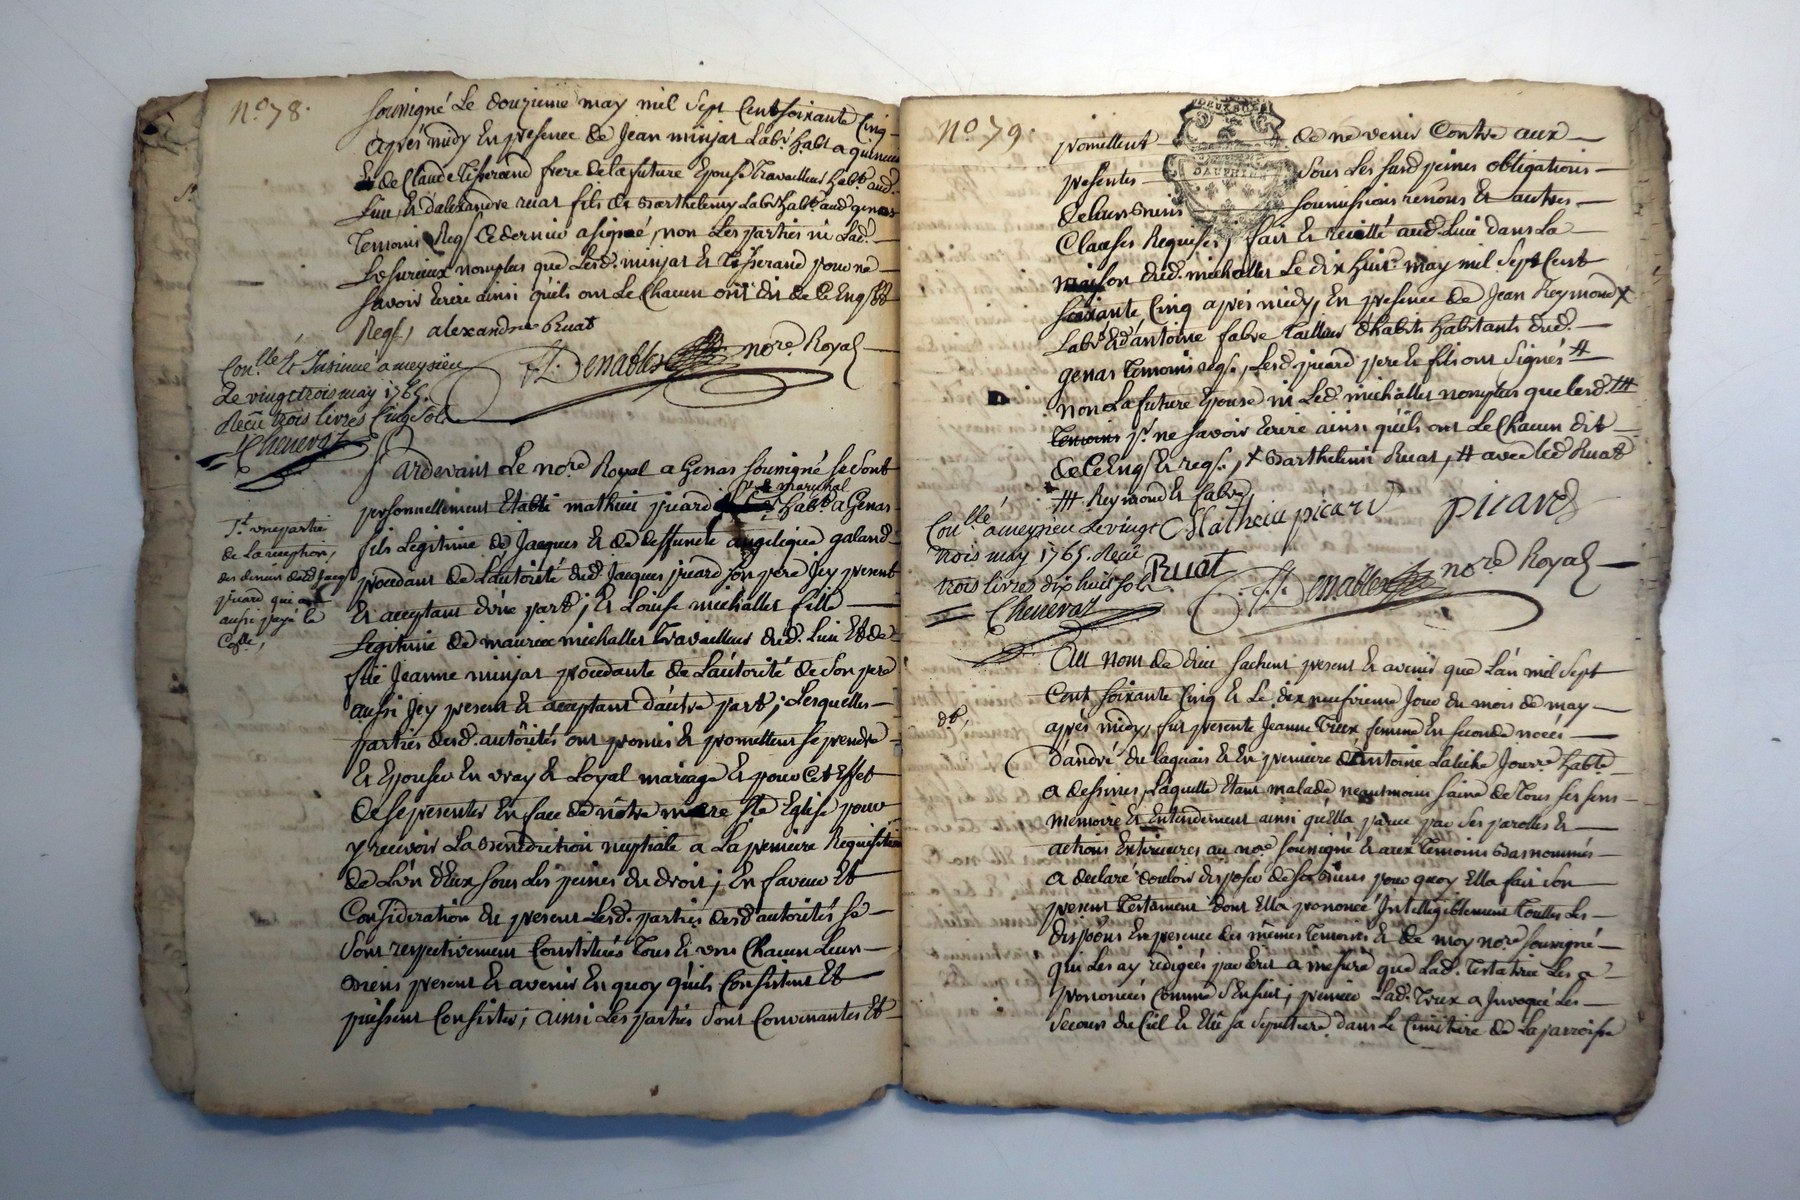 N.o 78.
souvigné Le douzieme may mil sept Cent soixante Cinq
après midy En presence de Jean minjat Labr habt a
de Claude Tisserand frere de la future Epouse Travailleur habt aud.
Lieu Et dalexandre ruat fils de Barthelemy Labr habt aud genas
Temoins Reqs Ce dernier a signé, non Les parties ni Lad.
nomplus que Lesd. minjat Et Tisserand pour ne
savoir Ecrire ainsi quils ont Le Chacun dit de Ce Enq Et
Reqs, alexandre Ruat
Denables nore Royal
Con.lle Et Insinué a meysieu
Le vingt trois may 1765.
Recu trois livres Cinq sols
Chenevaz
Pardevant Le nore Royal a Genas souvigné se sont
personnellement Etabli mathieu picard habt a Genas
marchal
fils Legitime de Jacques Et de deffunte angelique galand
procedant de Lautorité dud. Jacques picard son pere Icy present
Et acceptant d'une part; Et Louise michallet fille
Legitime de maurice michallet Travailleur dud. Lieu Et de
Jeanne minjat procedante de Lautorité de son pere
aussi Icy present Et acceptant d'autre part; Lesquelles
parties desd. autorités ont promis Et promettent se prendre
Et Epouser En vray Et Loyal mariage Et pour Cet Effet
de se presenter En face de nôtre mere Ste Eglise pour
y recevoir La Benediction nuptiale a La premiere Requisition
de L'un d'Eux sous Les peines du droit; En faveur Et
Consideration du present Lesd. parties desd autorités se
sont respectivement Constitués Tous Et uns Chacun Leurs
Biens present Et avenir En quoy qu'ils Consistent Et
puissent Consister; ainsi Les parties sont Convenantes Et
une partie
de La reception,
des deniers dud Jacqs
picard qui a
aussi payé le
N.o 79.
promettent de ne venir Contre aux
presentes sous Les susd peines obligations
de Leurs Biens soumissions renons Et autres
DAUPHINÉ
Clauses Requises, fait Et recitté aud. Lieu dans La
maison dud. michallet Le dix huit may mil sept Cent
soixante Cinq après midy, En presence de Jean Reymond X
Labr Et d'antoine fabre Tailleur d'habits habitants dud.
genas Temoins reqs, Lesd. picard pere Et fils ont signés #
non La future Epouse ni Led. michallet nomplus que Lesd. ##
Temoins pr. ne savoir Ecrire ainsi quils ont Le Chacun dit
de Ce Enq Et reqs., X Barthelemi Ruat, # avec Led Ruat
## Reymond Et fabre
Mathieu picard picard
Con.lle a meysieu Le vingt
trois may 1765. Recu
trois livres dix huit sols
Chenevaz
Ruat
Denables nore Royal
Au nom de dieu sachent present Et avenir que L'an mil sept
Cent soixante Cinq Et Le dix neufvieme Jour du mois de may
après midy, fut presente Jeanne Treux femme En seconde noces
d'andré du laquais Et En premiere d'Antoine Jourr. habte
a dessines, Laquelle Etant malade neantmoins saine de Tous ses sens
memoire Et Entendement ainsi quElla parue par ses parolles Et
actions Exterieures au nore souvigné Et aux Temoins Bas nommés
a declaré vouloir disposer de ses Biens pour quoy Ella fait son
present Testament dont Ella prononcé Intelligiblement touttes Les
dispôons En presence des mêmes Temoins Et de moy nore souvigné
qui Les ay redigées par Ecrit a mesure que Lad. Testatrice Les a
prononcées Comme s'Ensuit; premier Lad. Treux a Invoqué Les
secours du Ciel Et Elû sa sepulture dans Le Cimitiere de La parroisse